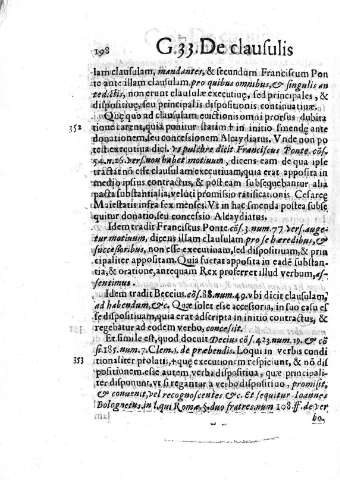 198 G.33. De clausulis
lam clausulam, mandantes, & secundum Franciscum Pon
te ante illam clausulam, pro quibus omnibus, & singulis an
tedictis, non erunt clausulæ executiuæ, sed principales, &
dispositiuæ, seu principalis dispositionis continuatiuæ.
Quæ quo ad clausulam euictionis omni prorsus dubita
352 tione carent, quia ponitur statim † in initio s mendę ante
donationem, seu concessionem Alcaydiatus. Vnde non po
test executiua dici. Vt pulchre dicit Franciscus Ponte. cōs.
54. n. 26. vers. non habet motiuum, dicens eam de qua ipse
tractat nō esse clausulam executiuam, quia erat apposita in
medio ipsius contractus, & postea in subsequebantur alia
pacta substantialia, veluti promissio ratificationis Cesareę
Maiestatis infra sex menses. Vt in hac smenda postea subse
quitur donatio, seu concessio Alcaydiatus.
Idem tradit Franciscus Ponte cōs. 3. num. 77. vers. auge-
tur motiuum, dicens illam clausulam, pro se hæredibus, &
successoribus, non esse executiuam, sed dispositiuam, & prin
cipaliter appositam. Quia fuerat apposita in eadē substan-
tia, & oratione, antequam Rex proferret illud verbum, as-
sentimus.
Idem tradit Beccius cōs. 88. num. 49. vbi dicit clausulam,
ad habendum, &c. Quæ solet else accessoria, in suo casu es
se dispositiuam, quia erat adscripta in initio contractus, &
regebatur ad eodem verbo, concessit.
Et simile est, quod docuit Decius cōs. 423. num. 19. & cō
ss. 185. num. 7. Clem. 1. de præbendis. Loqui in verbis condi
353 tionaliter prolati, † quę executionem respiciunt, & nō dis
positionem, esse autem verba dispositiua, quæ principali-
ter disponunt, vt si regantur à verbo dispositiuo, promisit,
& conuenit, vel recognoscentes &c. Et sequitur Ioannes
Bolognetus, in l. qui Romæ §. duo fratres, num 108 ff. de ver
bo,